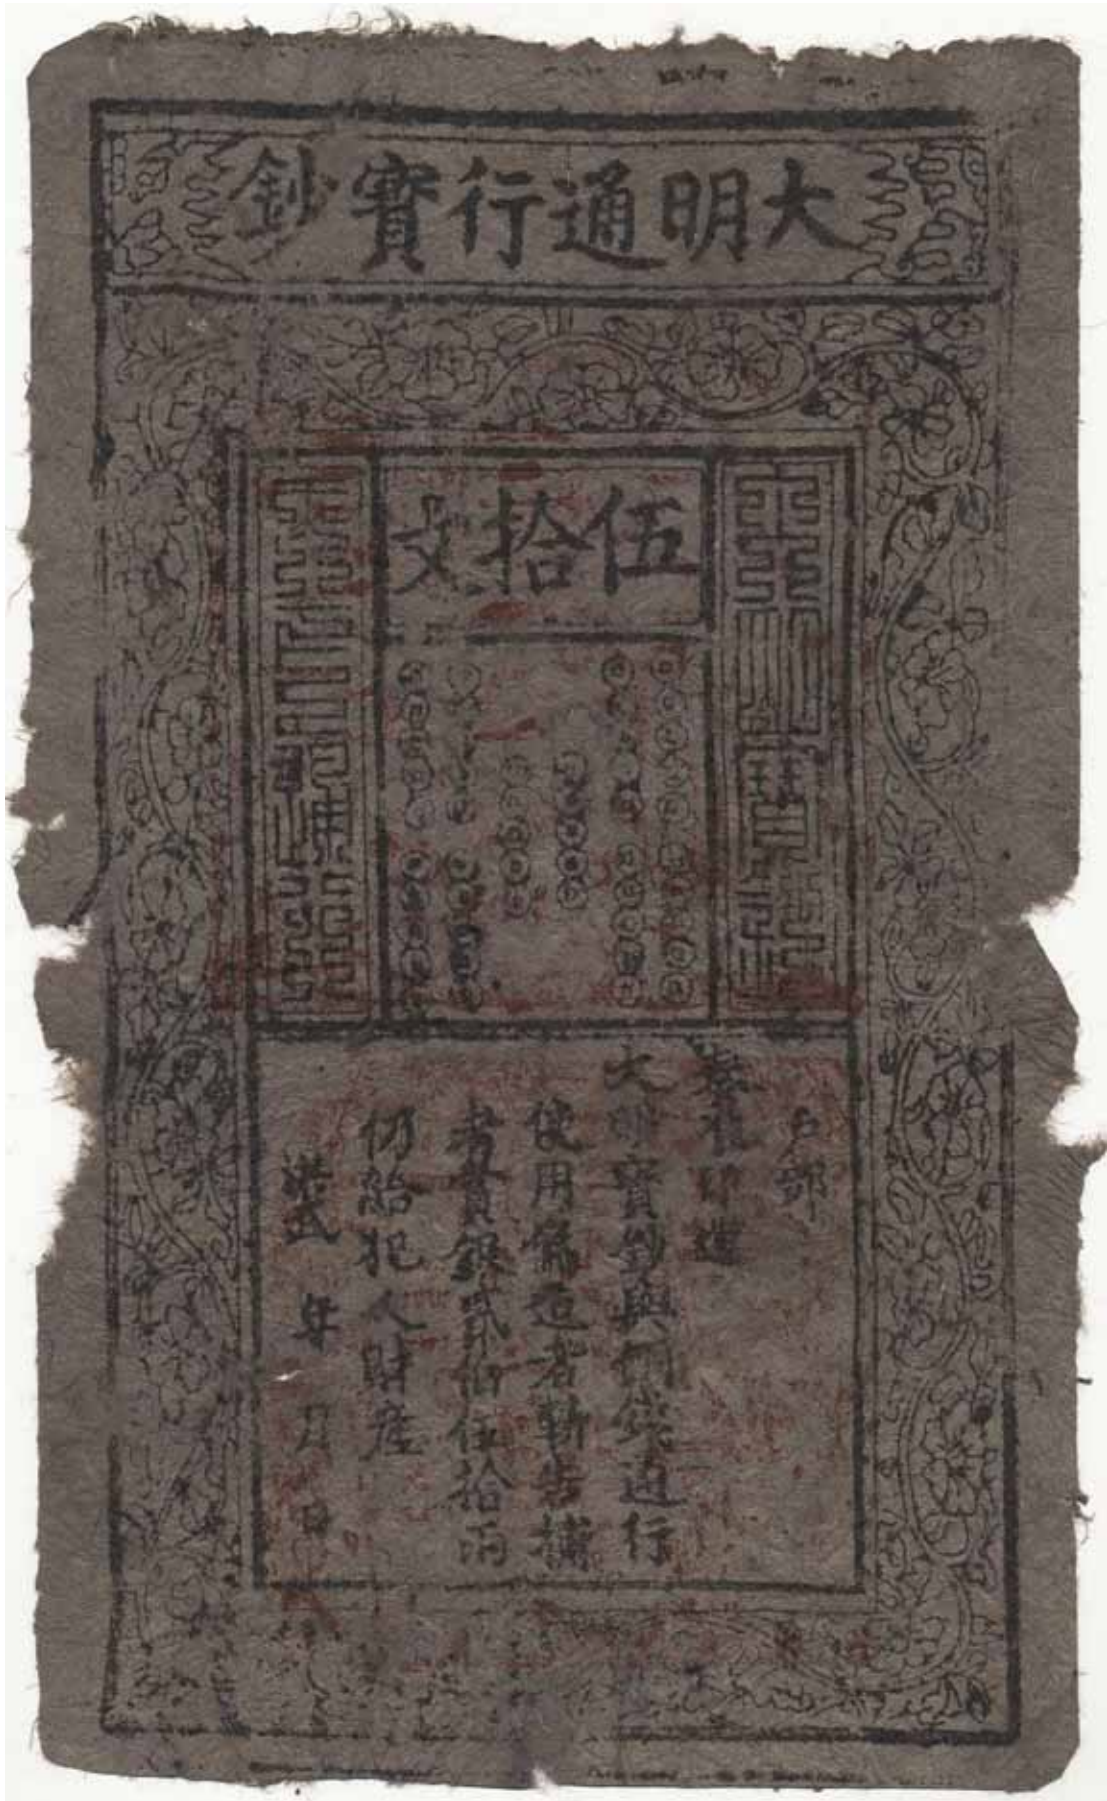 大明通行寶鈔
伍拾文
戶部
奏准印造
大明寶鈔與銅錢通行
使用僞造者斬告捕
者賞銀貳伯伍拾兩
仍給犯人財產
洪武 年 月 日